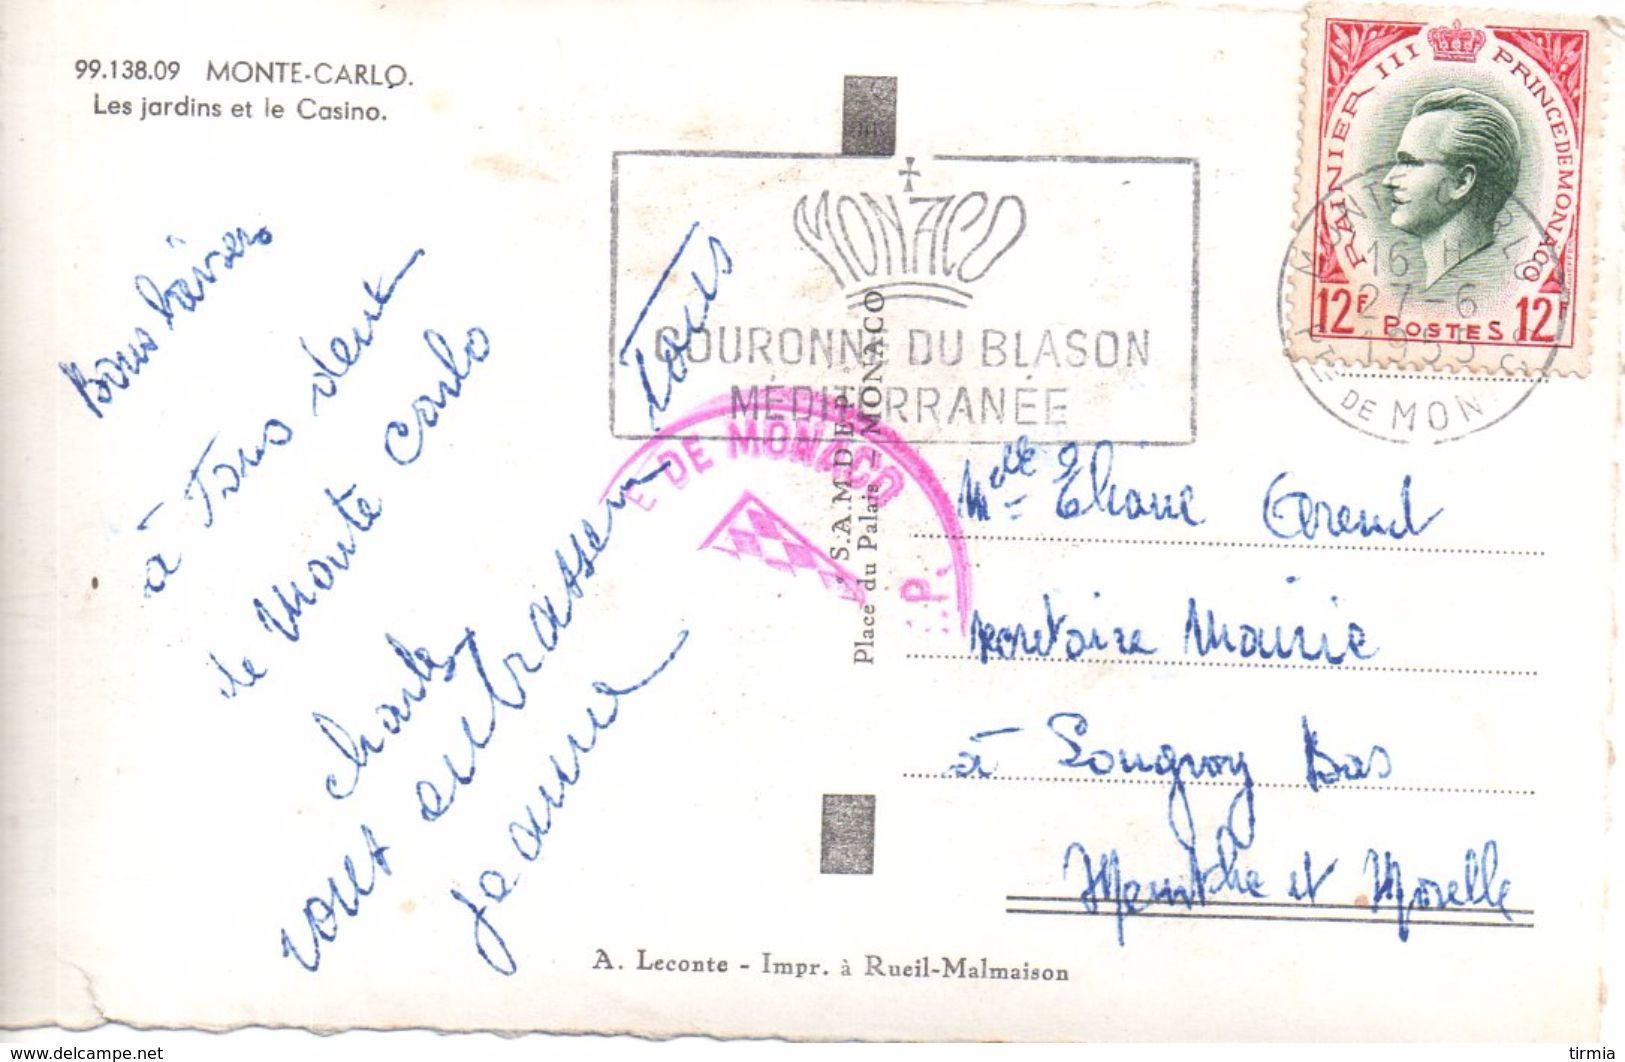 99.138.09 MONTE-CARLO.
Les jardins et le Casino.
Bons baisers
à Tous deux
de Monte Carlo
Charles
vous embrassent Tous
Jeanne
MONACO
COURONNE DU BLASON
MÉDITERRANÉE
E DE MONACO
S.A.M.D.E.P.
Place du Palais – MONACO
RAINIER III PRINCE DE MONACO
12F POSTES 12F
MONTE CARLO
16 H
27-6
DE MON
Melle Eliane
secretaire Mairie
à Longwy Bas
Meurthe et Moselle
A. Leconte - Impr. à Rueil-Malmaison
tirmia